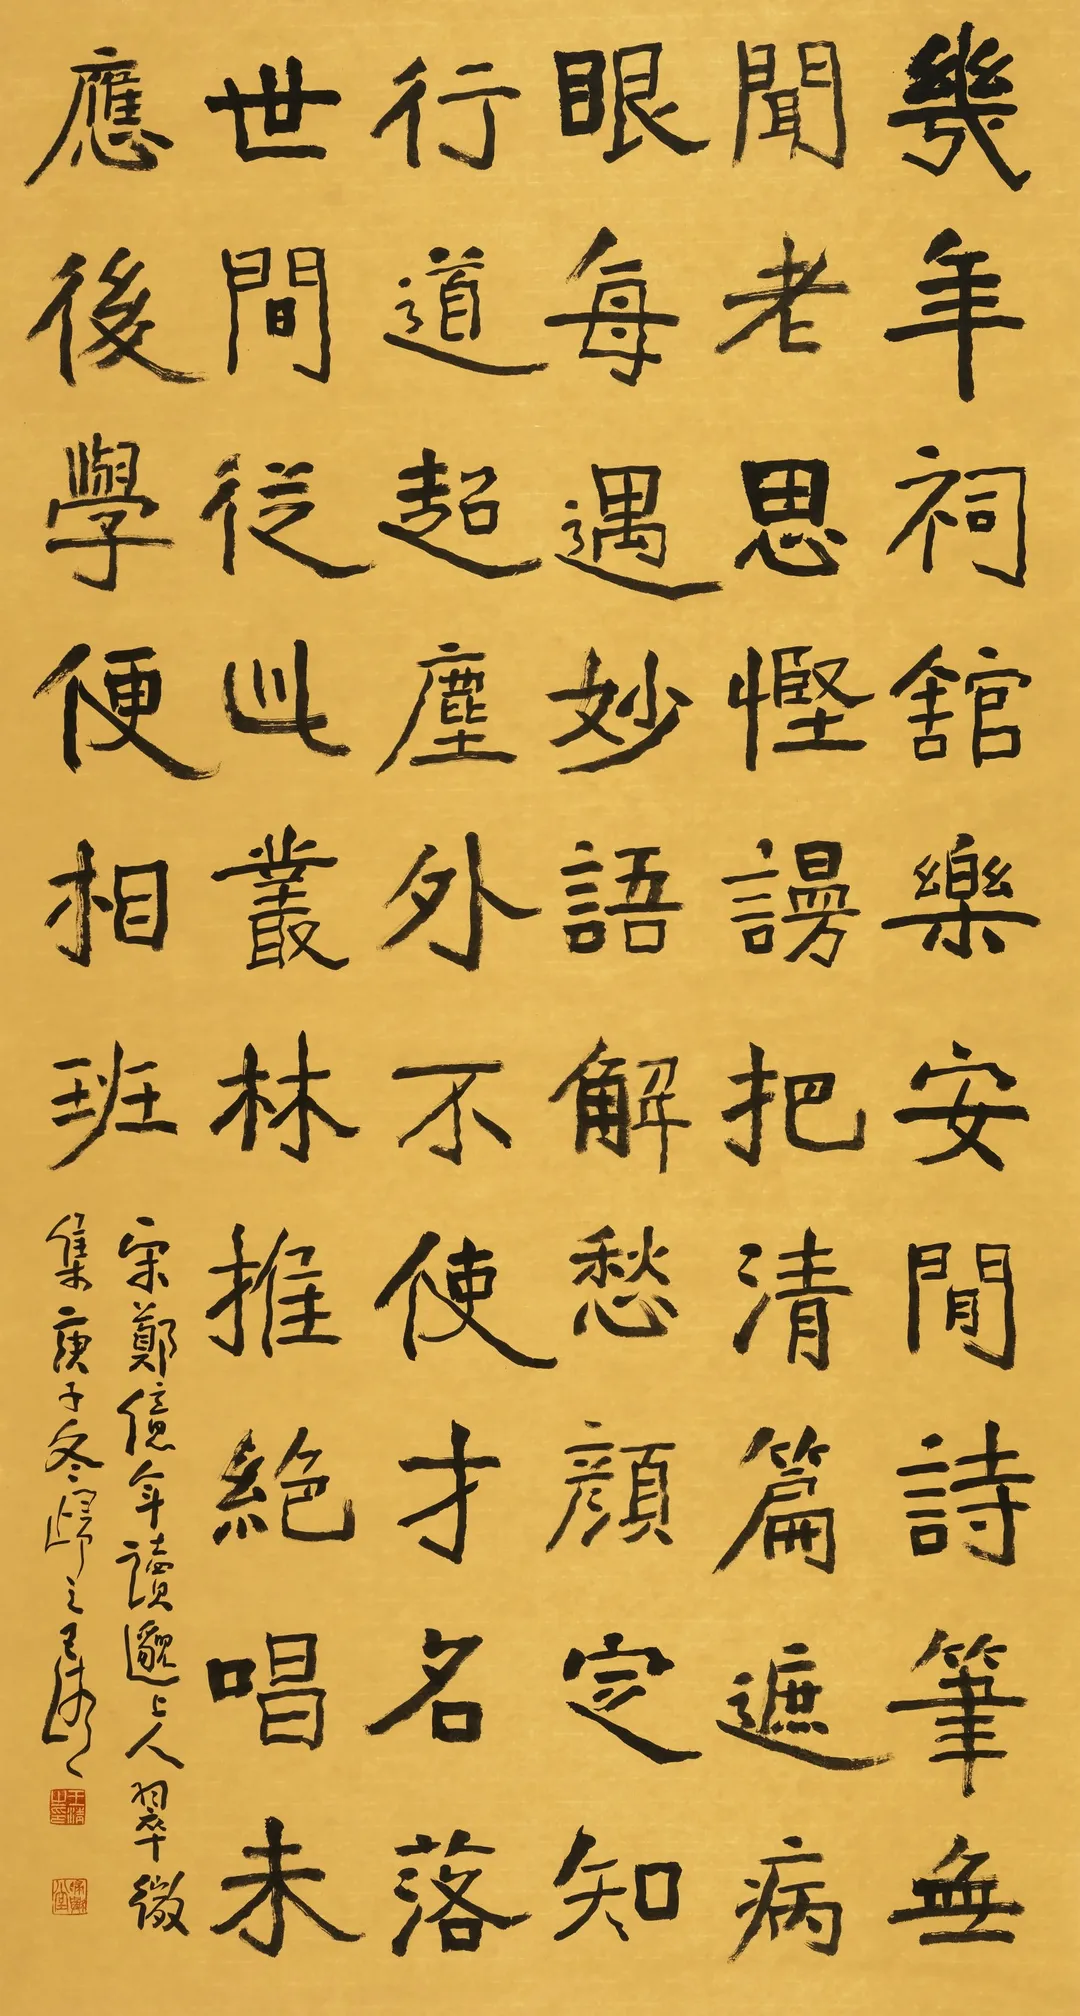 幾年祠舘樂安閒詩筆無
聞老思慳謾把清篇遮病
眼每遇妙語解愁顔定知
行道超塵外不使才名落
世間從此叢林推絶唱未
應後學便相班
宋鄭億年讀邈上人翠微
集庚子冬歸之王清